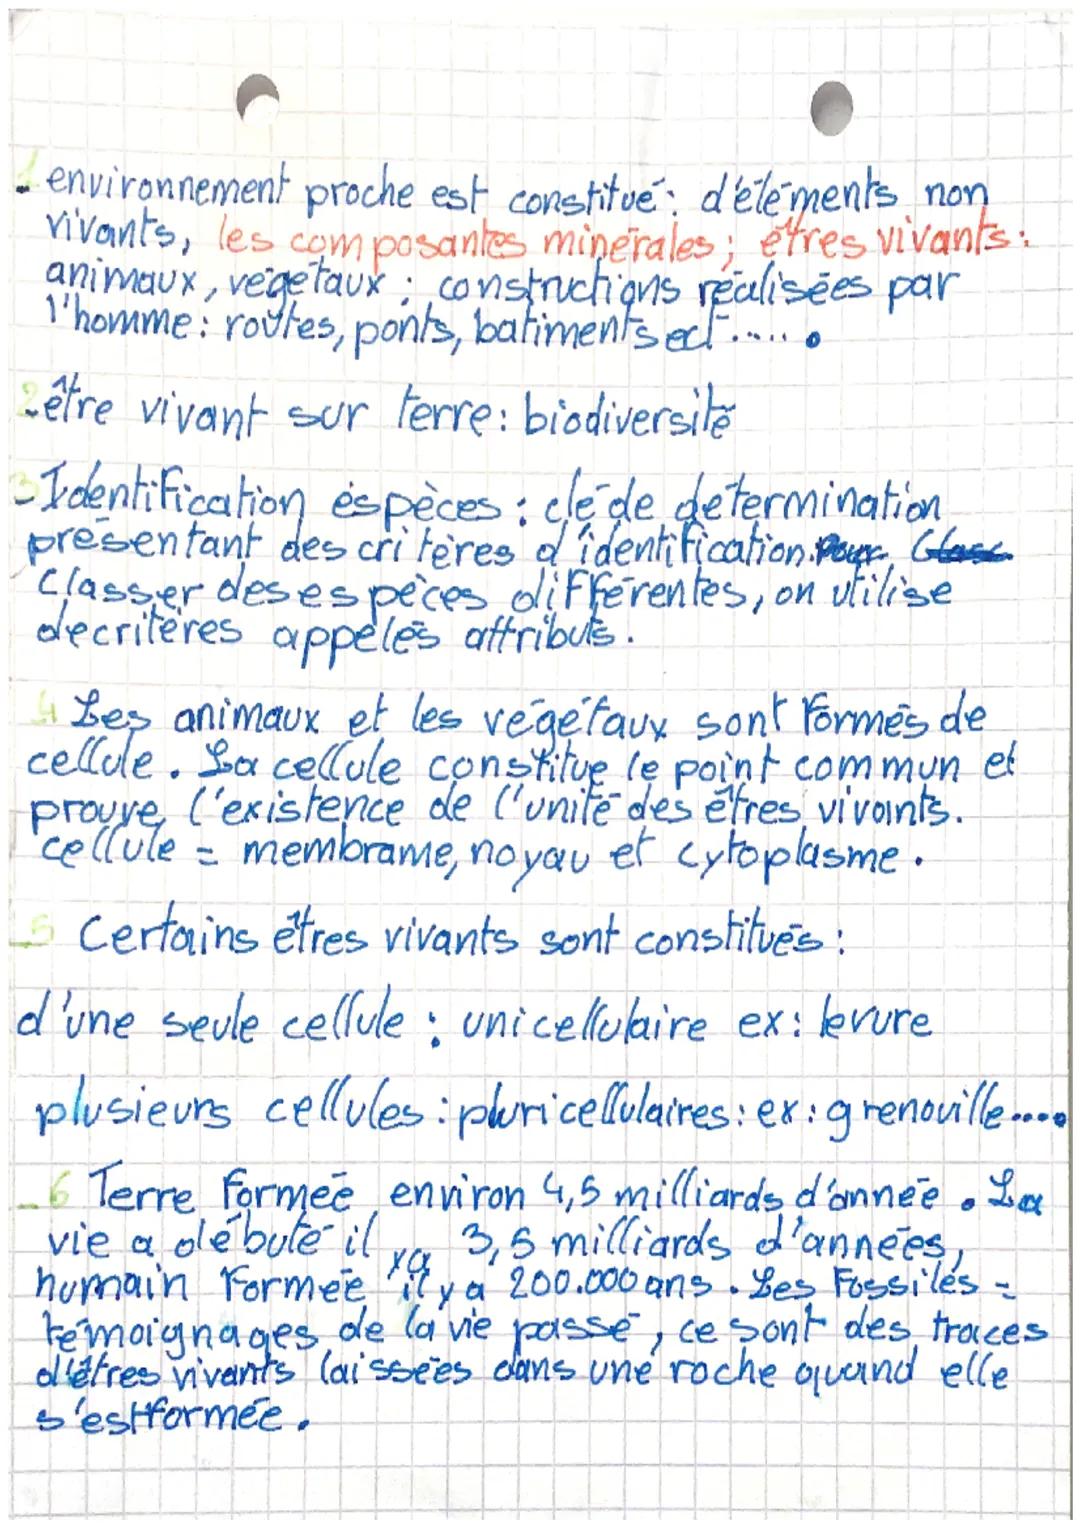 1. environnement proche est constitué: d'éléments non
vivants, les composantes minérales; êtres vivants:
animaux, végétaux; constructions réalisées par
l'homme: routes, ponts, batiments ect.....
2. être vivant sur terre: biodiversité
3 Identification éspèces: clé de détermination
présentant des critères d'identification. Pour
Classer des espèces différentes, on utilise
decritères appelés attributs.
4 Les animaux et les végétaux sont formés de
cellule. La cellule constitue le point commun et
prouve l'existence de l'unité des êtres vivants.
cellule = membrame, noyau et cytoplasme.
5 Certains êtres vivants sont constitués:
d'une seule cellule: unicellulaire ex: levure
plusieurs cellules: pluricellulaires: ex: grenouille....
6 Terre formée environ 4,5 milliards d'année. La
vie a débuté il ya 3,5 milliards d'années,
humain formée il y a 200.000 ans. Les Fossiles =
témoignages de la vie passé, ce sont des traces
d'êtres vivants laissées dans une roche quand elle
s'est formée.